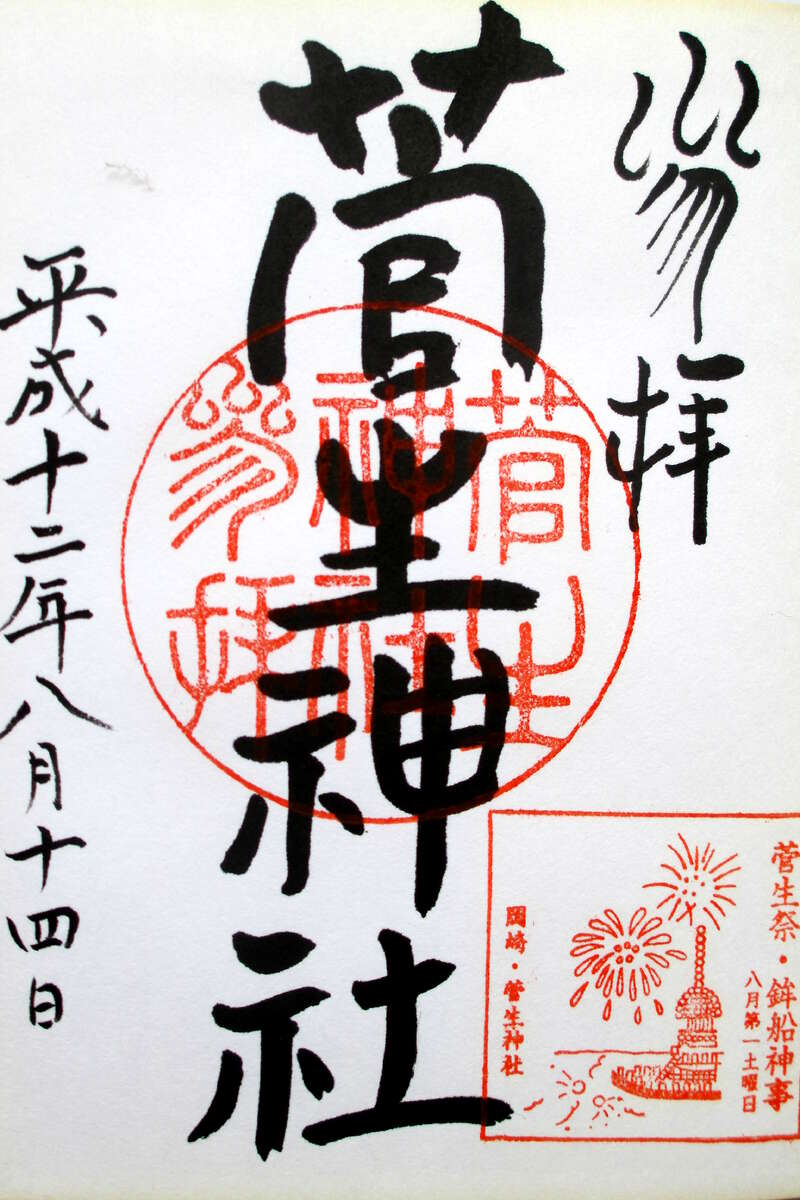 参拝
菅生神社
平成十二年八月十四日
菅生
神社
参拝
菅生祭・鉾船神事
八月第一土曜日
岡崎・菅生神社